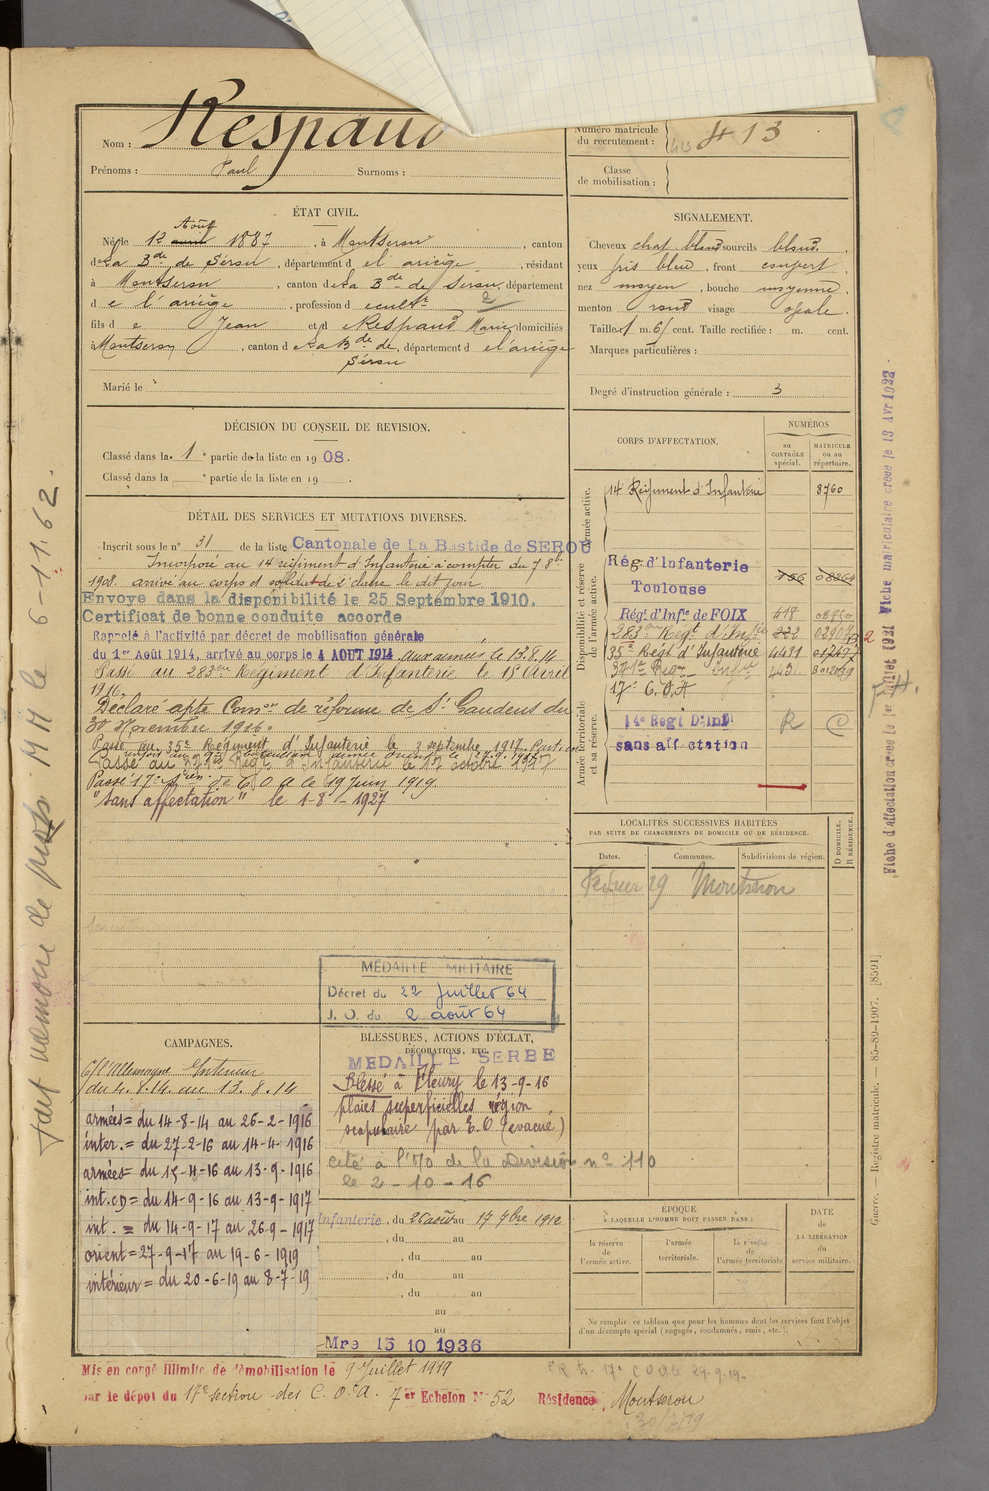 Nom : Respaud
Prénoms : Paul Surnoms :
Numéro matricule
du recrutement : 413 413
Classe
de mobilisation :
ÉTAT CIVIL.
Août
Né le 12 avril 1887, à Montseron, canton
de La Bde de Sérou, département de l'ariège, résidant
à Montseron, canton de La Bde de Serou, département
de l'ariège, profession de cultr
2
fils de Jean et de Respaud Marie domiciliés
à Montseron, canton de La Bde de, département de l'ariège
Sérou
Marié le
SIGNALEMENT.
Cheveux chat blond sourcils blond
yeux gris bleu, front couvert
nez moyen, bouche moyenne
menton rond visage ovale.
Taille 1 m. 61 cent. Taille rectifiée : m. cent.
Marques particulières :
Degré d'instruction générale : 3
DÉCISION DU CONSEIL DE REVISION.
Classé dans la 1e partie de la liste en 1908.
Classé dans la e partie de la liste en 19 .
DÉTAIL DES SERVICES ET MUTATIONS DIVERSES.
Inscrit sous le n° 31 de la liste Cantonale de La Bastide de SEROU
Incorporé au 14 régiment d'Infanterie à compter du 7 8bre
1908. arrivé au corps et soldat de 2e classe le dit jour
Envoye dans la disponibilité le 25 Septembre 1910.
Certificat de bonne conduite accorde
Rappelé à l'activité par décret de mobilisation générale
du 1er Août 1914, arrivé au corps le 4 AOUT 1914 aux armées le 13.8.14
Passé au 283eme Régiment d'Infanterie le 15 Avril
1916.
Déclaré apte Comon de réforme de St Gaudens du
30 Novembre 1916.
Passé au 35e Régiment d'Infanterie le 3 septembre 1917.
Passé au 371e Régt d'Infanterie le 17 octobre 1917
Passé 17e Son de C O A le 19 Juin 1919.
"Sans affectation" le 1-8-1927
CORPS D'AFFECTATION.
NUMÉROS
au
CONTRÔLE
spécial.
MATRICULE
ou au
répertoire.
Armée active.
14 Régiment d'Infanterie 8760
Disponibilité et réserve
de l'armée active.
Rég. d'Infanterie
Toulouse
Rég. d'Infie de FOIX 418
283eme Régt d'Infie 222
35e Régt d'Infanterie 4431
371e Regt Infie 443
17e C.O.A
Armée territoriale
et sa réserve.
14e Regt D'Infi R C
sans affectation
LOCALITÉS SUCCESSIVES HABITÉES
PAR SUITE DE CHANGEMENTS DE DOMICILE OU DE RÉSIDENCE.
Dates. Communes. Subdivisions de région. D DOMICILE. R RÉSIDENCE.
Fevrier 29 Montseron
MÉDAILLE MILITAIRE
Décret du 22 Juillet 64
J. O. du 2 août 64
CAMPAGNES.
C/ l'Allemagne Intérieur
du 4.8.14 au 13.8.14
armées = du 14-8-14 au 26-2-1916
inter. = du 27-2-16 au 14-4-1916
armées = du 15-4-16 au 13-9-1916
int. CD = du 14-9-16 au 13-9-1917
int. = du 14-9-17 au 26-9-1917
orient = 27-9-17 au 19-6-1919
intérieur = du 20-6-19 au 8-7-19
BLESSURES, ACTIONS D'ÉCLAT,
DÉCORATIONS, ETC.
MEDAILLE SERBE
Blessé à Fleury le 13-9-16
plaies superficielles région
scapulaire par E.O (évacué)
cité à l'O/O de la Division n° 110
le 2-10-16
Infanterie, du 26 août au 17 7bre 1912
, du au
, du au
, du au
, du au
au
au
Mre 15 10 1936
ÉPOQUE
À LAQUELLE L'HOMME DOIT PASSER DANS :
la réserve
de
l'armée active.
l'armée
territoriale.
la réserve
de
l'armée territoriale
DATE
de
LA LIBÉRATION
du
service militaire.
Ne remplir ce tableau que pour les hommes dont les services font l'objet
d'un décompte spécial (engagés, condamnés, omis, etc.
Mis en congé illimité de démobilisation le 9 Juillet 1919
par le dépot du 17e section des C.O.A. 7er Echelon N° 52 Résidence, Montseron
fait mémoire de prop. MM le 6-11-62.
Fiche d'affectation créée le 1er Juillet 1921 Fiche matriculaire créée le 13 Avr 1922
Guerre. — Registre matricule. — 85-89-1907. [8591]